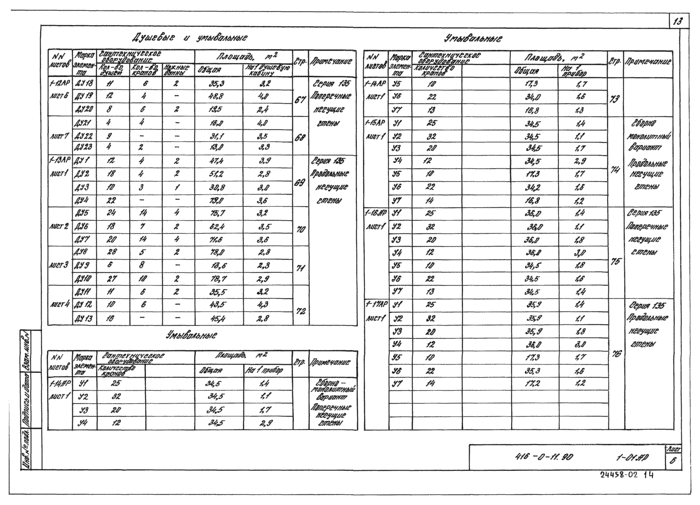 13
Душевые и умывальные
NN листов | Марка элемента | Сантехническое оборудование | Площадь, м² | Стр. | Примечание
Кол-во душей | Кол-во кранов | Ножные ванны | Общая | На 1 душевую кабину
1-12АР | ДУ18 | 11 | 6 | 2 | 35,3 | 3,2 | Серия 135
лист 6 | ДУ19 | 12 | 4 | 2 | 48,8 | 4,0 | 67 | Поперечные
ДУ20 | 8 | 6 | 2 | 19,5 | 2,4 | несущие
ДУ21 | 4 | 4 | – | 16,0 | 4,0 | стены
лист 7 | ДУ22 | 9 | – | – | 31,1 | 3,5 | 68
ДУ23 | 4 | 2 | – | 13,0 | 3,3
1-13АР | ДУ1 | 12 | 4 | 2 | 47,4 | 3,9 | Серия 135
лист 1 | ДУ2 | 18 | 4 | 2 | 51,2 | 2,8 | 69 | Продольные
ДУ3 | 10 | 3 | 1 | 30,8 | 3,0 | несущие
ДУ4 | 22 | – | – | 79,0 | 3,6 | стены
ДУ5 | 24 | 14 | 4 | 76,7 | 3,2
лист 2 | ДУ6 | 18 | 7 | 2 | 62,4 | 3,5 | 70
ДУ7 | 20 | 14 | 4 | 71,6 | 3,6
ДУ8 | 28 | 5 | 2 | 78,0 | 2,8
лист 3 | ДУ9 | 6 | 8 | – | 13,6 | 2,3 | 71
ДУ10 | 27 | 10 | 2 | 78,7 | 2,9
ДУ11 | 11 | 6 | 2 | 35,5 | 3,2
лист 4 | ДУ12 | 10 | 6 | – | 43,5 | 4,3 | 72
ДУ13 | 16 | – | – | 45,4 | 2,8
Умывальные
NN листов | Марка элемента | Сантехническое оборудование | Площадь, м² | Стр. | Примечание
Количество кранов | Общая | На 1 прибор
1-14АР | У1 | 25 | 34,5 | 1,4 | Сборно-
лист 1 | У2 | 32 | 34,5 | 1,1 | монолитный вариант
У3 | 20 | 34,5 | 1,7 | Поперечные несущие
У4 | 12 | 34,5 | 2,9 | стены
Умывальные
NN листов | Марка элемента | Сантехническое оборудование | Площадь, м² | Стр. | Примечание
Количество кранов | Общая | На 1 прибор
1-14АР | У5 | 10 | 17,3 | 1,7
лист 1 | У6 | 22 | 34,0 | 1,6 | 73
У7 | 13 | 16,8 | 1,3
1-15АР | У1 | 25 | 34,5 | 1,4 | Сборно
лист 1 | У2 | 32 | 34,5 | 1,1 | монолитный
У3 | 20 | 34,5 | 1,7 | вариант
У4 | 12 | 34,5 | 2,9 | 74 | Продольные
У5 | 10 | 17,3 | 1,7 | несущие
У6 | 22 | 34,2 | 1,6 | стены
У7 | 14 | 16,8 | 1,2
1-16АР | У1 | 25 | 36,0 | 1,4 | Серия 135
лист 1 | У2 | 32 | 36,0 | 1,1 | Поперечные
У3 | 20 | 36,0 | 1,8 | несущие
У4 | 12 | 36,0 | 3,0 | 75 | стены
У5 | 10 | 34,5 | 1,8
У6 | 22 | 34,5 | 1,6
У7 | 13 | 34,5 | 1,4
1-17АР | У1 | 25 | 35,9 | 1,4 | Серия 135
лист 1 | У2 | 32 | 35,9 | 1,1 | Продольные
У3 | 20 | 35,9 | 1,8 | несущие
У4 | 12 | 36,0 | 3,0 | 76 | стены
У5 | 10 | 17,3 | 1,7
У6 | 22 | 35,3 | 1,6
У7 | 14 | 17,2 | 1,2
Инв. № подл. | Подпись и дата | Взам. инв. №
416-0-11.90 | 1-01.АР | Лист
6
24458-02 14